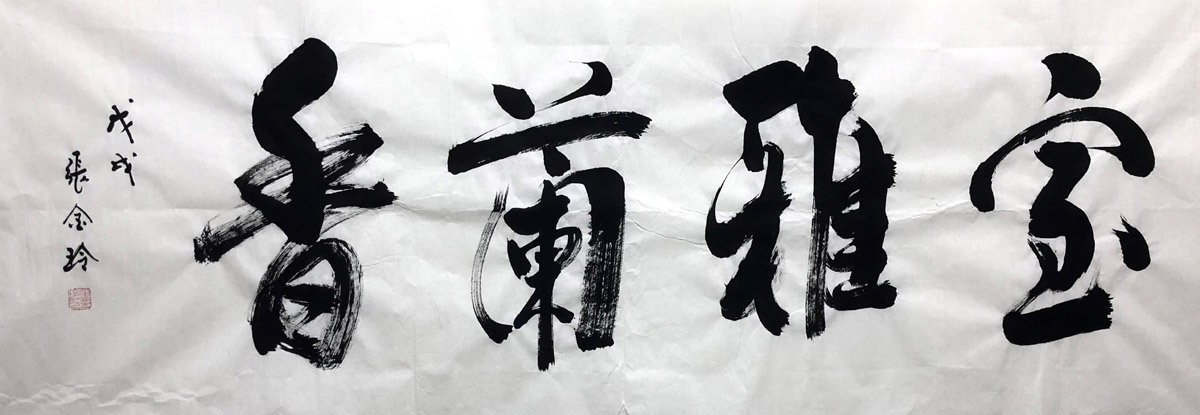 室雅蘭香
戊戌
張金玲